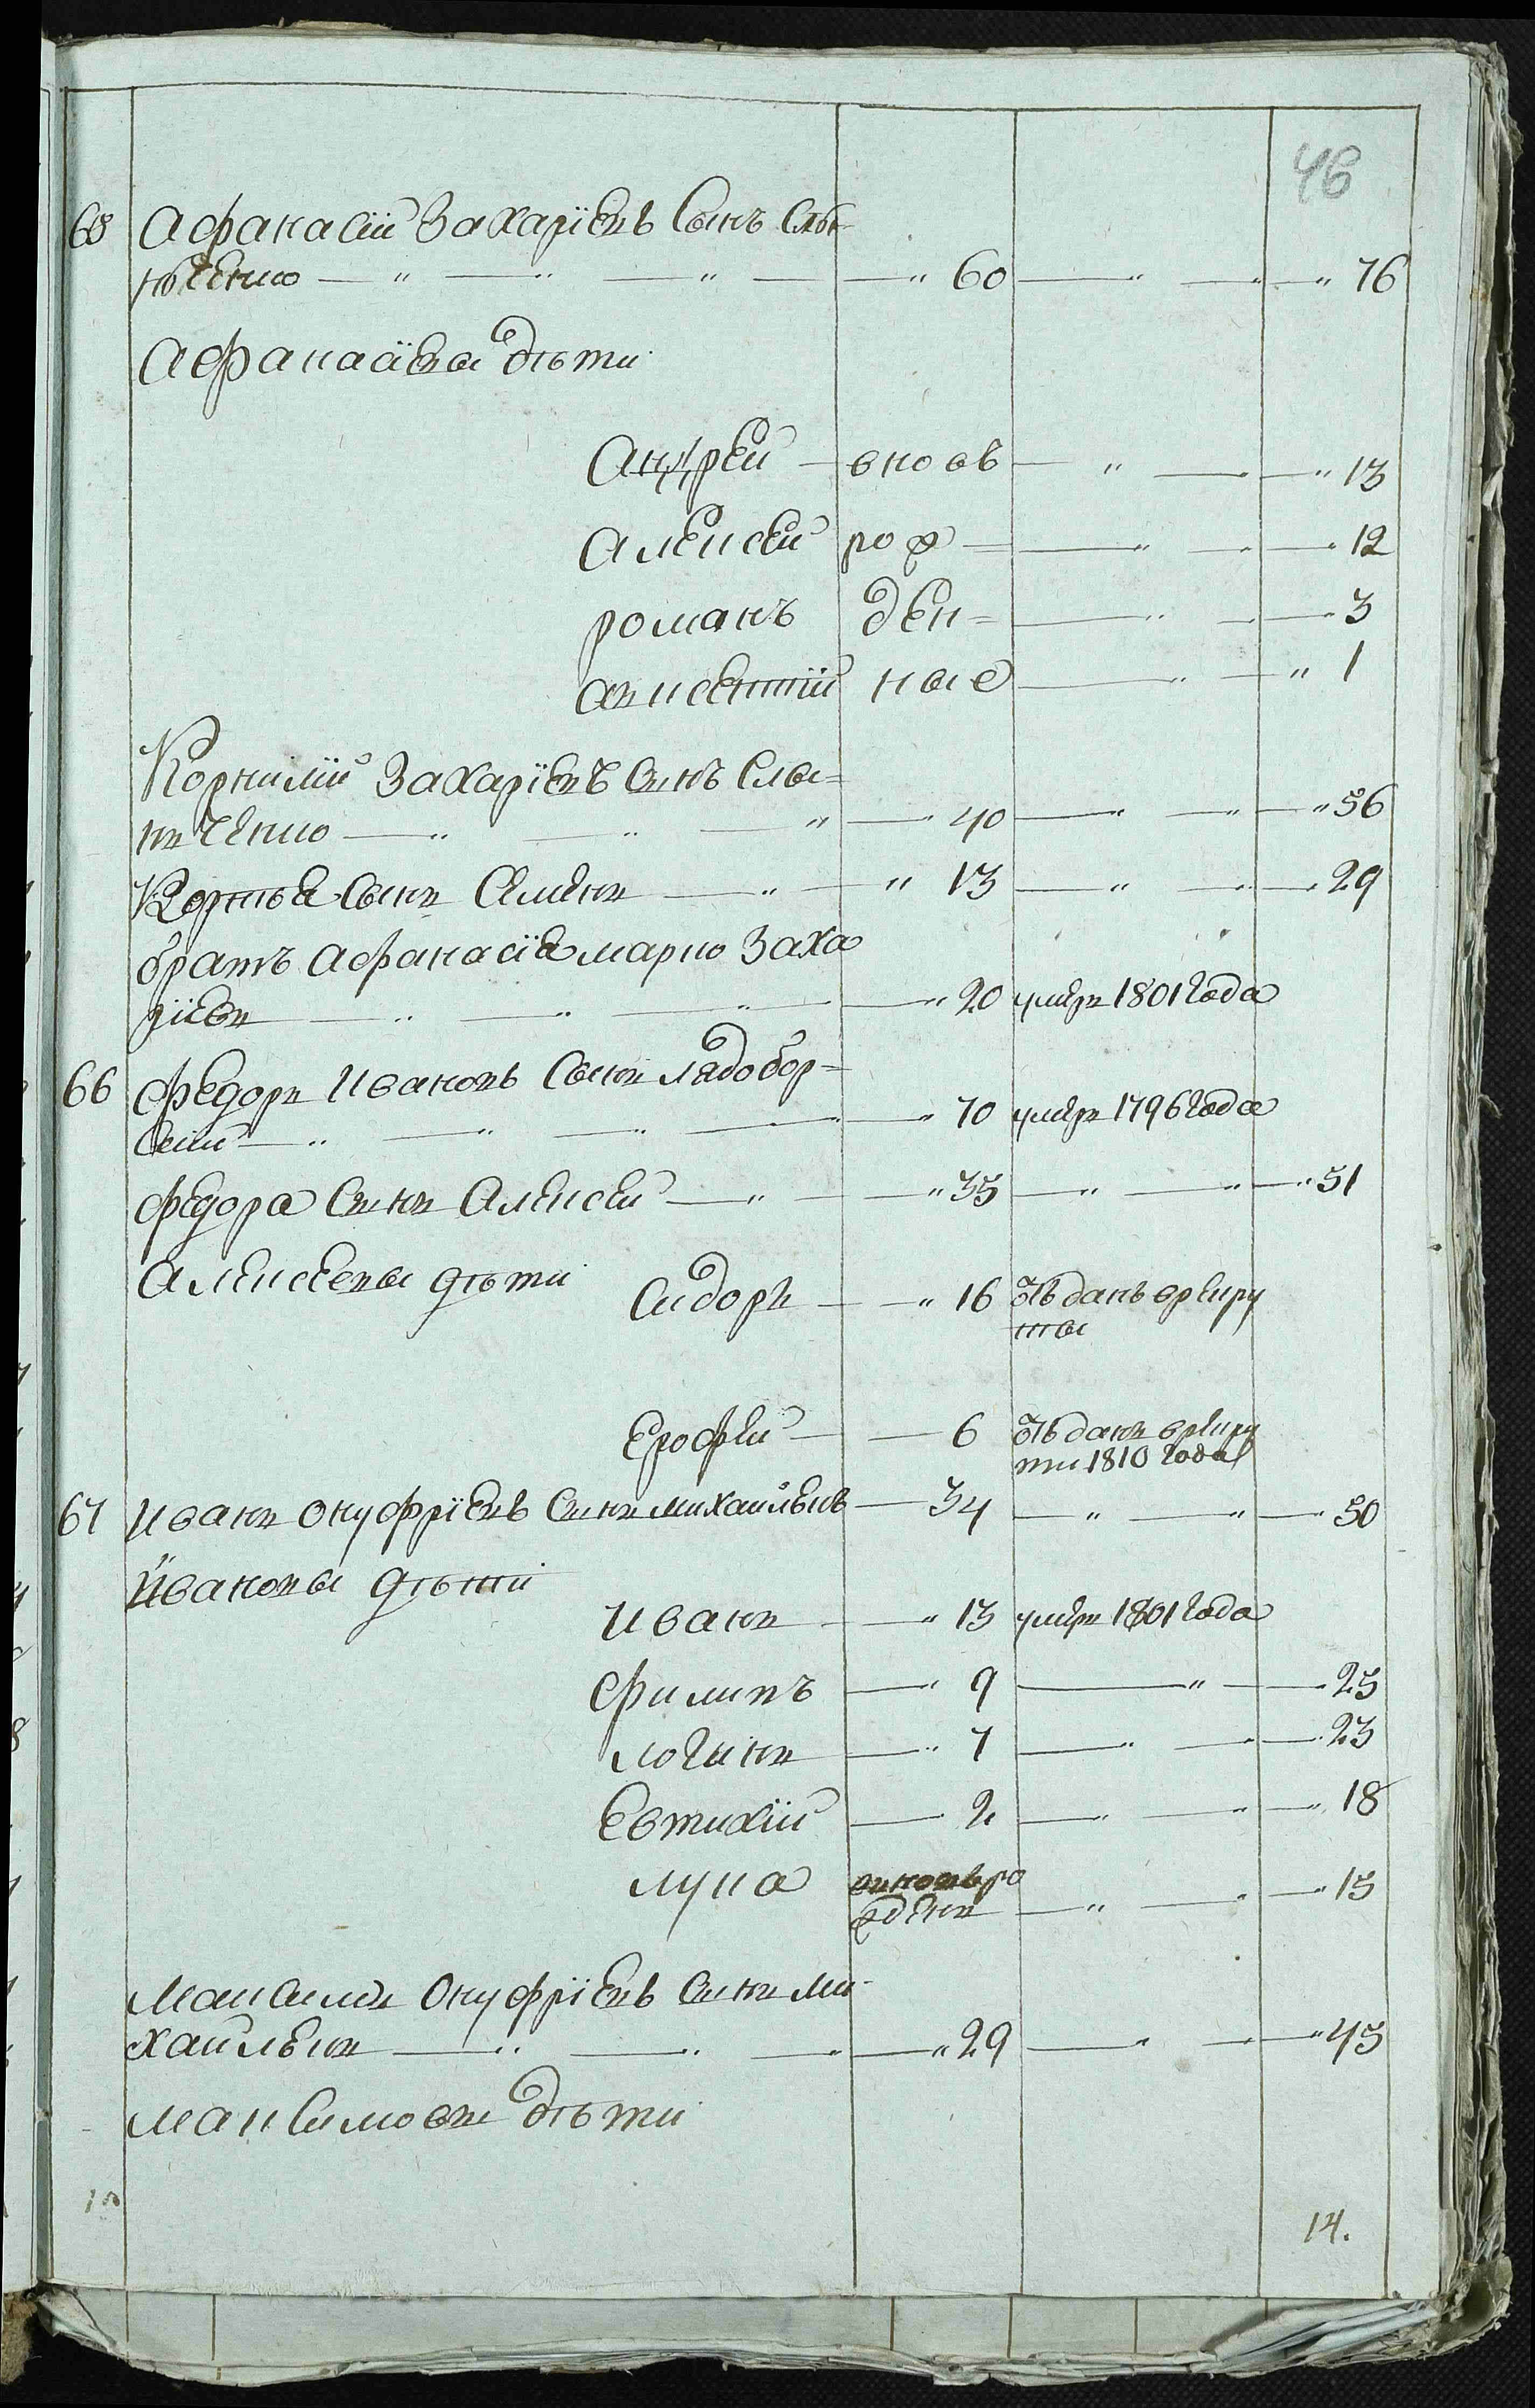 46
65 Афанасій Захаріевъ Сынъ Слы-
нченко — 60 — 76
Афанасіевы дѣти
Андрей — вновь — 13
Алексей рож — 12
романъ ден= — 3
авксентій ные — 1
Корнилій Захаріевъ сынъ Слы=
нченко — 40 — 56
Корнѣя Сынъ Семенъ — 13 — 29
братъ Афанасія марко Заха
ріевъ — 20 умеръ 1801 года
66 Федоръ Ивановъ Сынъ лядобор=
Скій — 70 умеръ 1796 года
Федора Сынъ Алексей — 35 — 51
Алексеевы дѣти Сидоръ — 16 отданъ врекру
ты
Ерофей — 6 отданъ врекру
ти 1810 года
67 Иванъ Онуфріевъ Сынъ михайленъ — 34 — 50
Ивановы дѣти
Иванъ — 13 умеръ 1801 года
Филипъ — 9 — 25
логинъ — 7 — 23
Евтихій — 2 — 18
лука вновьро
жденъ — 15
Максимъ Онуфріевъ Сынъ Ми-
хайленъ — 29 — 45
максимовы дѣти
14.